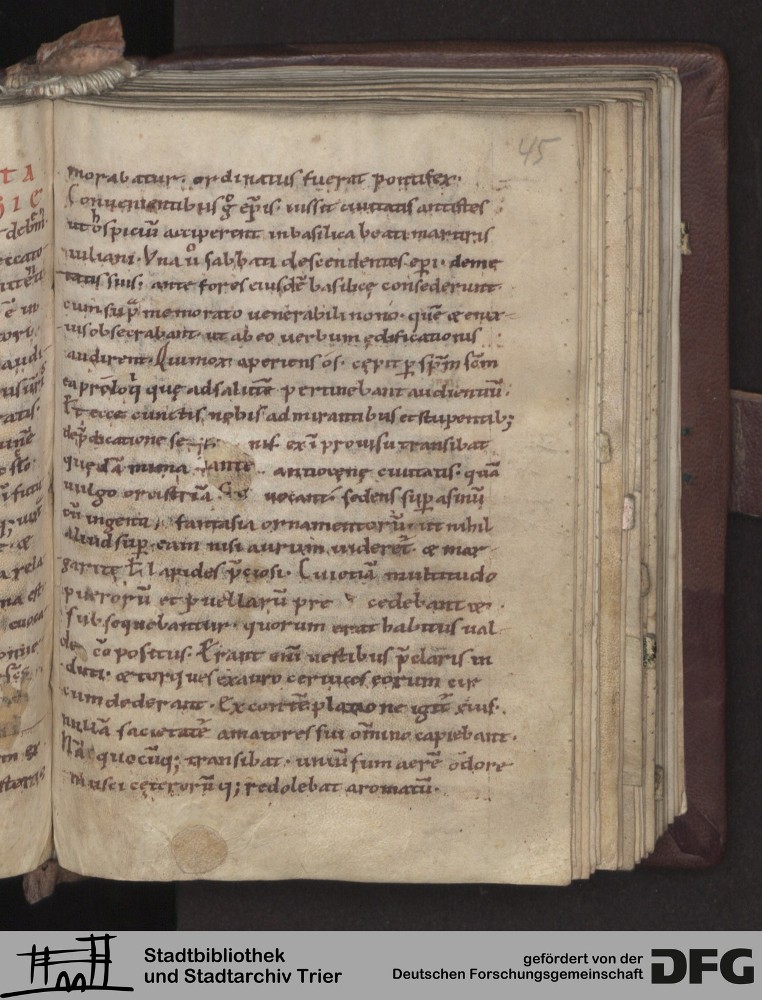 45
TA
morabatur. ordinatus fuerat pontifex.
Conuenientibus g̊ ep̄is. iussit ciuitatis antistes
ut hospiciū acciperent in basilica beati martiris
iuliani. Una ů sabbati descendentes ep̄i. deme
tatis suis. ante fores eiusdē basilicę consederunt
cum sup̄ memorato uenerabili nono. quē & enix
ius obsecrabant. ut ab eo uerbum ędificationis
audirent. Qui mox aperiens os. cępit p̱ sp̄m sc̄m
ea p̄loq̇ quę ad salutē pertinebant audientiū.
Et ecce cunctis nobis admirantibus et stupentib;
de p̄dicatione nis. ex īprouisu transibat
quędā mima antiocenę ciuitatis. quā
uulgo uocant. sedens sup̱ asinū
cū ingenti fantasia ornamentorū. ut nihil
aliud sup̱ eam nisi aurum uideret̄. & mar
garitę uł lapides p̄ciosi. Cui &iā multitudo
puerorū et puellarū pre cedebant &
subsequebantur. quorum erat habitus ual
de cōpositus. Erant eni uestibus p̄claris in
duti. & torques ex auro ceruices eorum cir
cumdederant. Ex contēplatione igit̄ eius.
nullā sacietatē amatores sui om̄ino capiebant.
Nā quocūq; transibat. unūsum aerē odore
musci ceterorūq; redolebat aromatū.
Stadtbibliothek
und Stadtarchiv Trier
gefördert von der
Deutschen Forschungsgemeinschaft
DFG